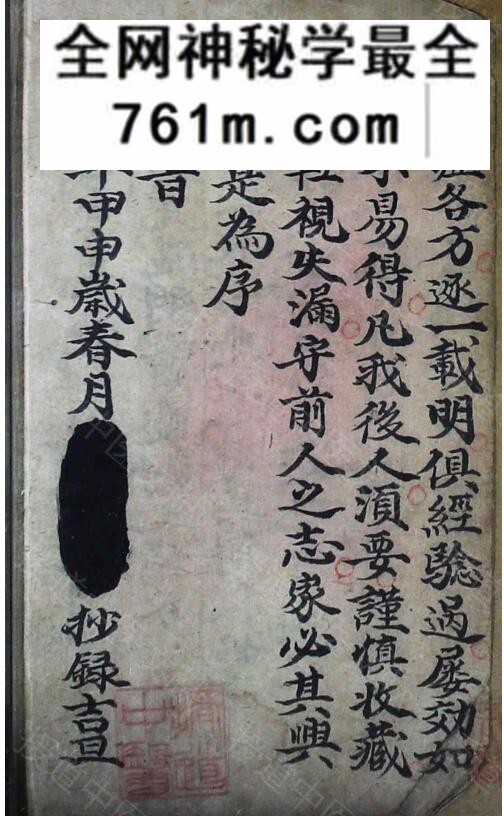 全网神秘学最全
761m.com
各方逐一載明俱經驗過屡効如
易得凡我後人須要謹慎收藏
視失漏守前人之志家必其興
是為序
甲申歲春月 抄録吉旦